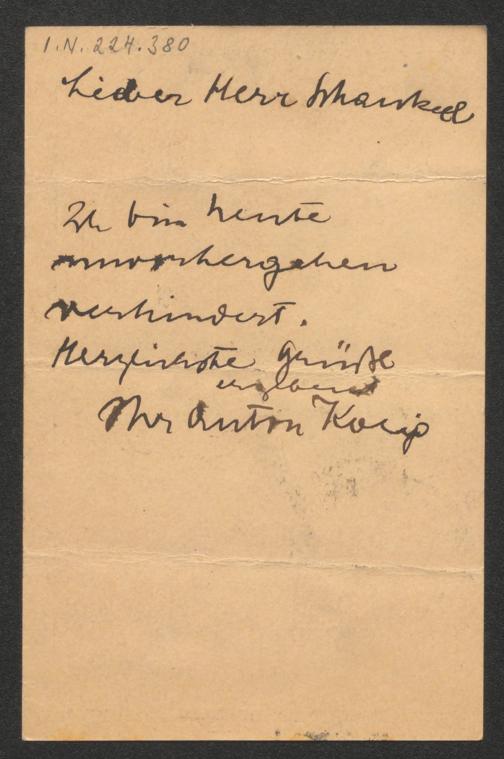 I.N. 224.380
Lieber Herr Schaukal
Ich bin heute
unvorhergesehen
verhindert.
Herzlichste Grüße
Ihr Anton Kolig